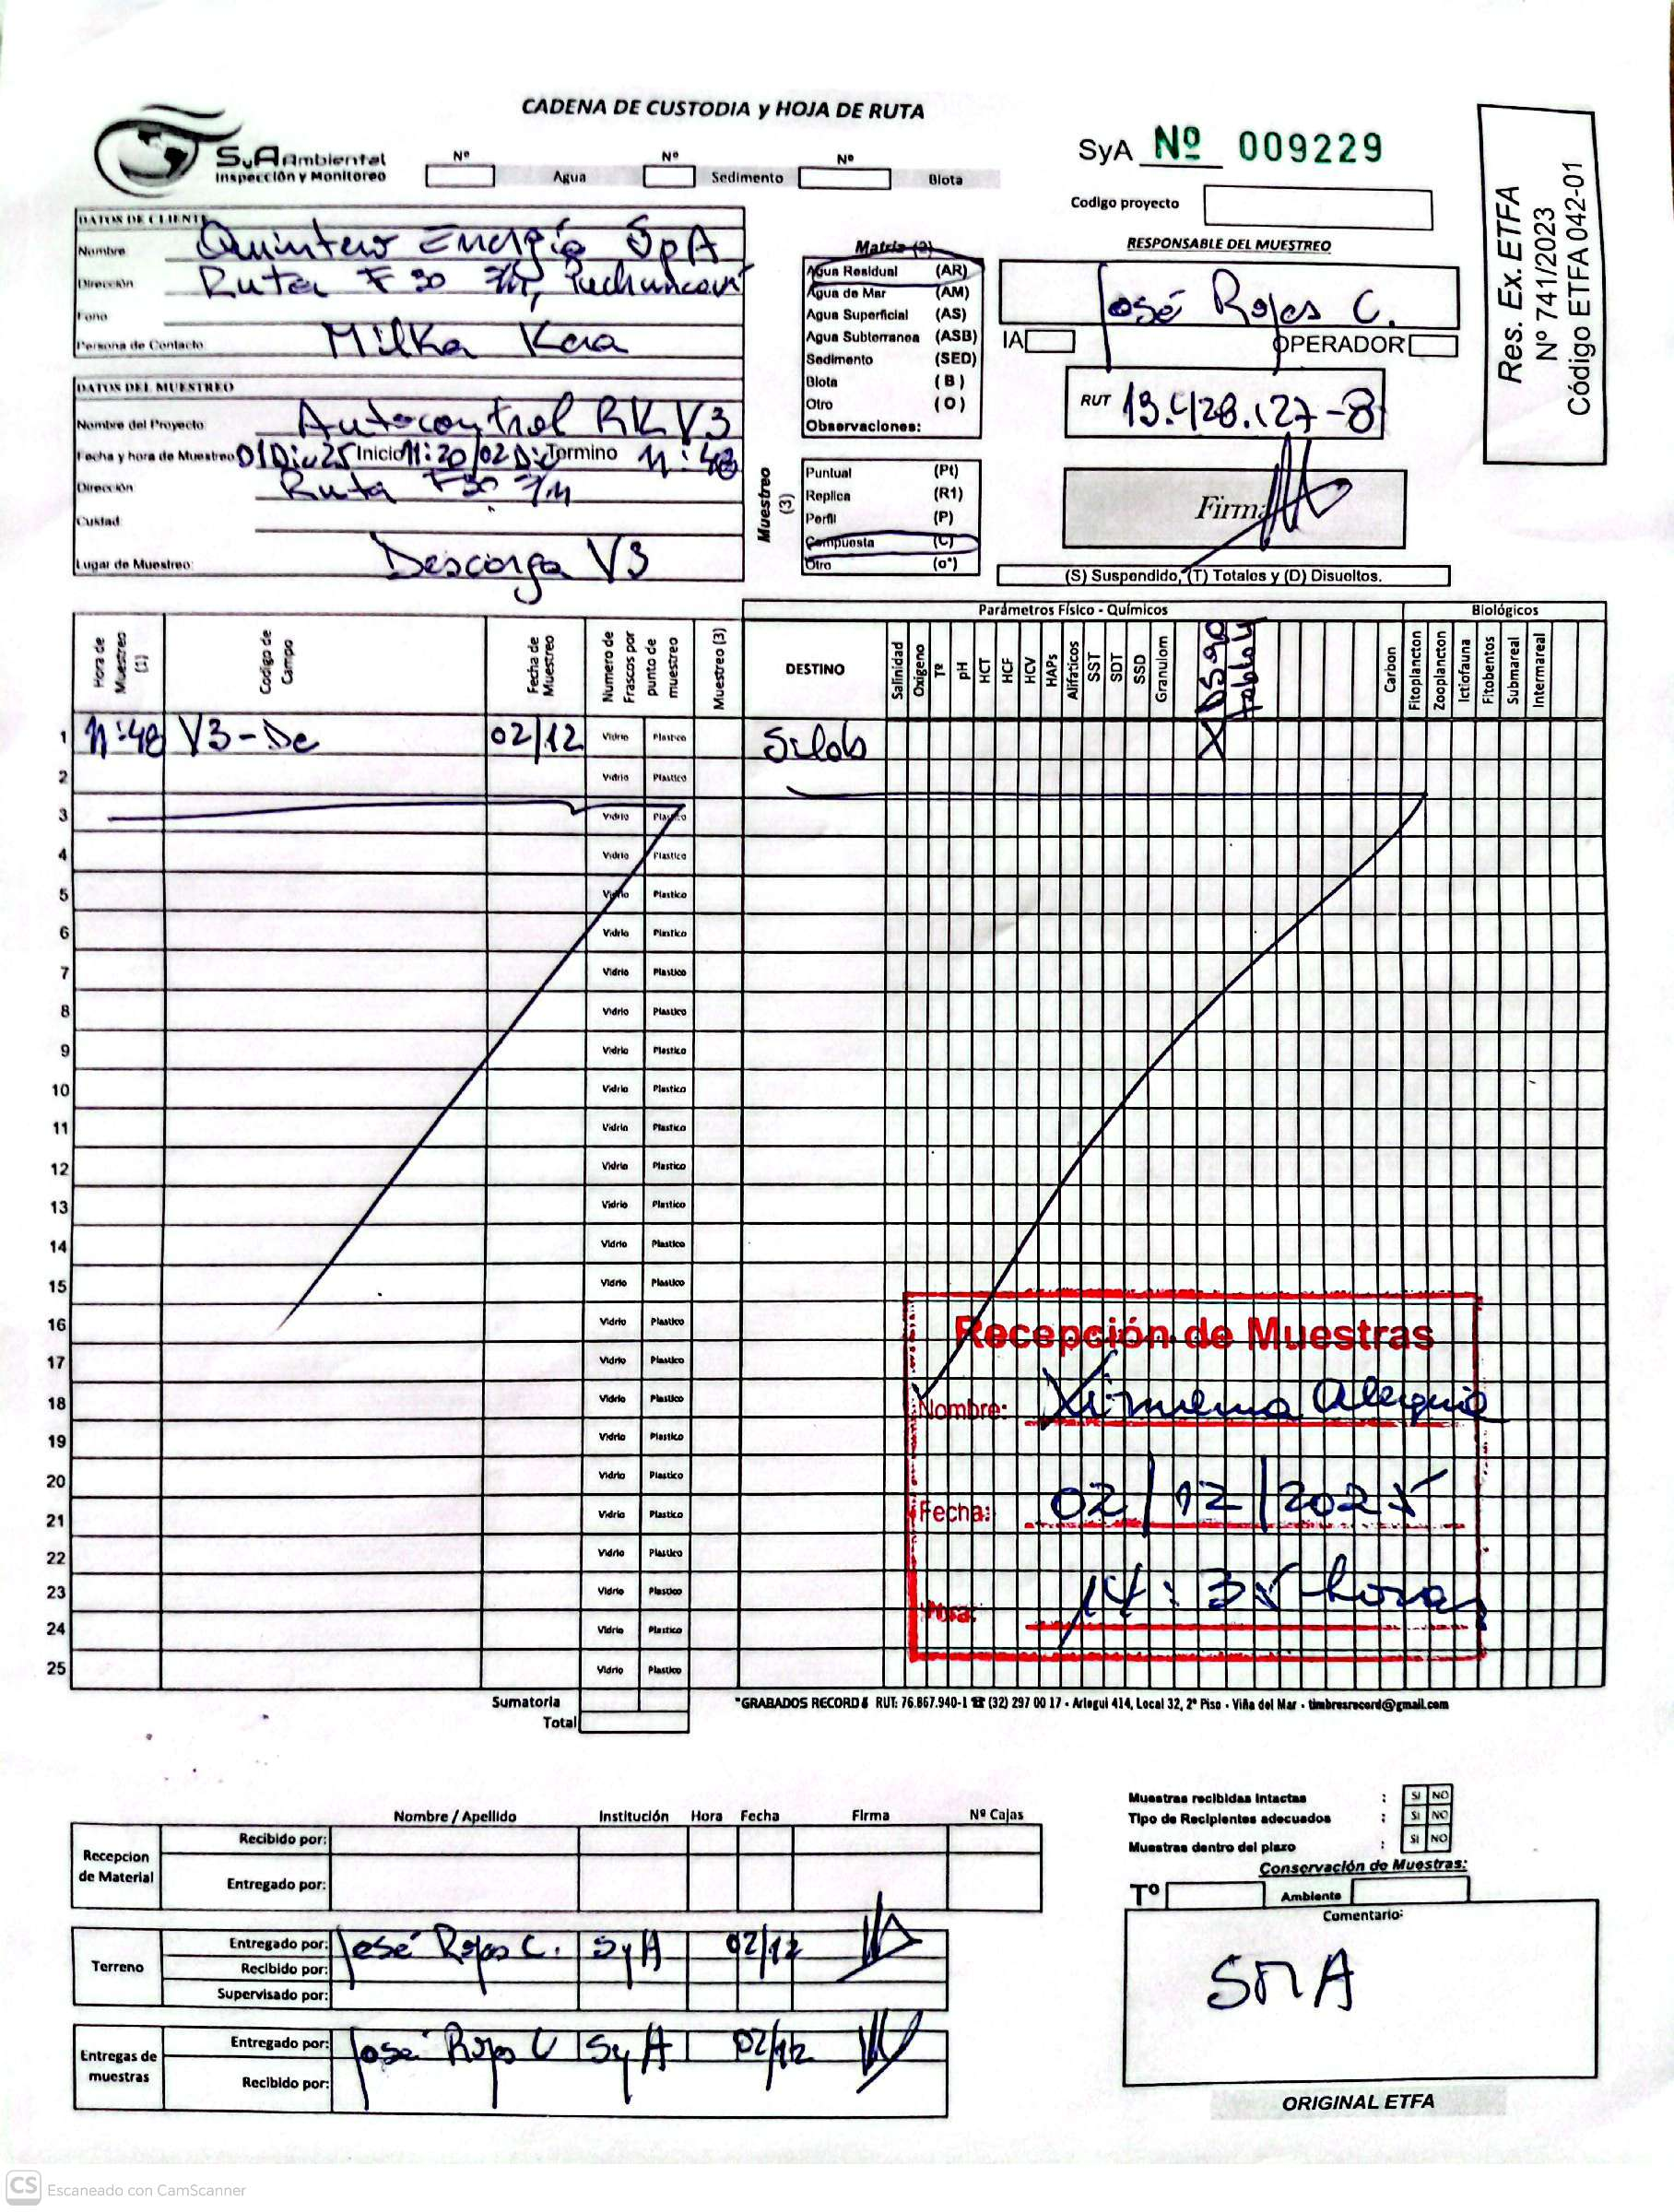 CADENA DE CUSTODIA y HOJA DE RUTA
SyA Ambiental
Inspección y Monitoreo
Nº Agua Nº Sedimento Nº Biota
SyA Nº 009229
Codigo proyecto
Res. Ex. ETFA
Nº 741/2023
Código ETFA 042-01
DATOS DE CLIENTE
Nombre Quintero Energía SpA
Dirección Ruta F 30 Puchuncaví
Fono
Persona de Contacto Milka
DATOS DEL MUESTREO
Nombre del Proyecto Autocontrol V3
Fecha y hora de Muestreo 01 Dic 25 Inicio 11:20 / 02 Dic Termino 11:48
Dirección Ruta F30
Cuidad
Lugar de Muestreo: Descarga V3
Matriz (2)
Agua Residual (AR)
Agua de Mar (AM)
Agua Superficial (AS)
Agua Subterranea (ASB)
Sedimento (SED)
Biota (B)
Otro (O)
Observaciones:
Muestreo (3)
Puntual (Pt)
Replica (R1)
Perfil (P)
Compuesta (C)
Otro (o*)
RESPONSABLE DEL MUESTREO
José Rojas C.
IA OPERADOR
RUT 13.428.127-8
Firma
(S) Suspendido, (T) Totales y (D) Disueltos.
Parámetros Físico - Químicos Biológicos
Hora de Muestreo (1) Codigo de Campo Fecha de Muestreo Numero de Frascos por punto de muestreo Muestreo (3) DESTINO Salinidad Oxigeno Tº pH HCT HCF HCV HAPs Alifaticos SST SDT SSD Granulom DS90 tabla 4 Carbon Fitoplancton Zooplancton Ictiofauna Fitobentos Submareal Intermareal
1 11:48 V3-De 02/12 Vidrio Plastico X
2 Vidrio Plastico
3 Vidrio Plastico
4 Vidrio Plastico
5 Vidrio Plastico
6 Vidrio Plastico
7 Vidrio Plastico
8 Vidrio Plastico
9 Vidrio Plastico
10 Vidrio Plastico
11 Vidrio Plastico
12 Vidrio Plastico
13 Vidrio Plastico
14 Vidrio Plastico
15 Vidrio Plastico
16 Vidrio Plastico
17 Vidrio Plastico
18 Vidrio Plastico
19 Vidrio Plastico
20 Vidrio Plastico
21 Vidrio Plastico
22 Vidrio Plastico
23 Vidrio Plastico
24 Vidrio Plastico
25 Vidrio Plastico
Recepción de Muestras
Nombre: Ximena
Fecha: 02/12/2025
Hora: 14:35 horas
Sumatoria
Total
"GRABADOS RECORD" RUT: 76.867.940-1 ☎ (32) 297 00 17 - Arlegui 414, Local 32, 2º Piso - Viña del Mar - timbresrecord@gmail.com
Nombre / Apellido Institución Hora Fecha Firma Nº Cajas
Recepcion de Material
Recibido por:
Entregado por:
Terreno
Entregado por: José Rojas C. SyA 02/12
Recibido por:
Supervisado por:
Entregas de muestras
Entregado por: José Rojas C SyA 02/12
Recibido por:
Muestras recibidas Intactas : SI NO
Tipo de Recipientes adecuados : SI NO
Muestras dentro del plazo : SI NO
Conservación de Muestras:
Tº Ambiente
Comentario:
SMA
ORIGINAL ETFA
CS Escaneado con CamScanner